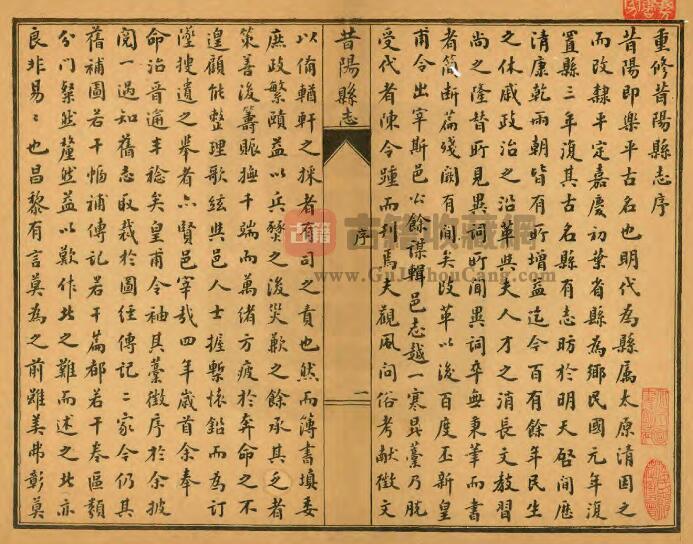 重修昔陽縣志序
昔陽即樂平古名也明代為縣屬太原清因之
而改隸平定嘉慶初葉省縣為鄉民國元年復
置縣三年復其古名縣有志昉於明天啓間歷
清康乾兩朝皆有所增益迄今百有餘年民生
之休戚政治之沿革與夫人才之消長文教習
尚之隆替所見異詞所聞異詞卒無秉筆而書
者簡斷篇殘闕有間矣改革以後百度丕新皇
甫令出宰斯邑公餘謀輯邑志越一寒暑藁乃脫
受代者陳令踵而刊焉夫觀風問俗考獻徵文
昔陽縣志
序
一
以備輶軒之採者有司之責也然而簿書填委
庶政繁賾益以兵燹之後災歉之餘承其乏者
策善後籌賑撫千端而萬緒方疲於奔命之不
遑顧能整理歌絃與邑人士握槧懷鉛而為訂
墜搜遺之舉者亦賢邑宰哉四年歲首余奉
命治晉適丰稔矣皇甫令袖其藁徵序於余披
閱一過知舊志收裁於圖經傳記二家今仍其
舊補圖若干幅補傳記若干篇都若干卷區類
分門粲然釐然益以歎作此之難而述之此亦
良非易易也昌黎有言莫為之前雖美弗彰莫
古籍收藏網
www.GuJiShouCang.com